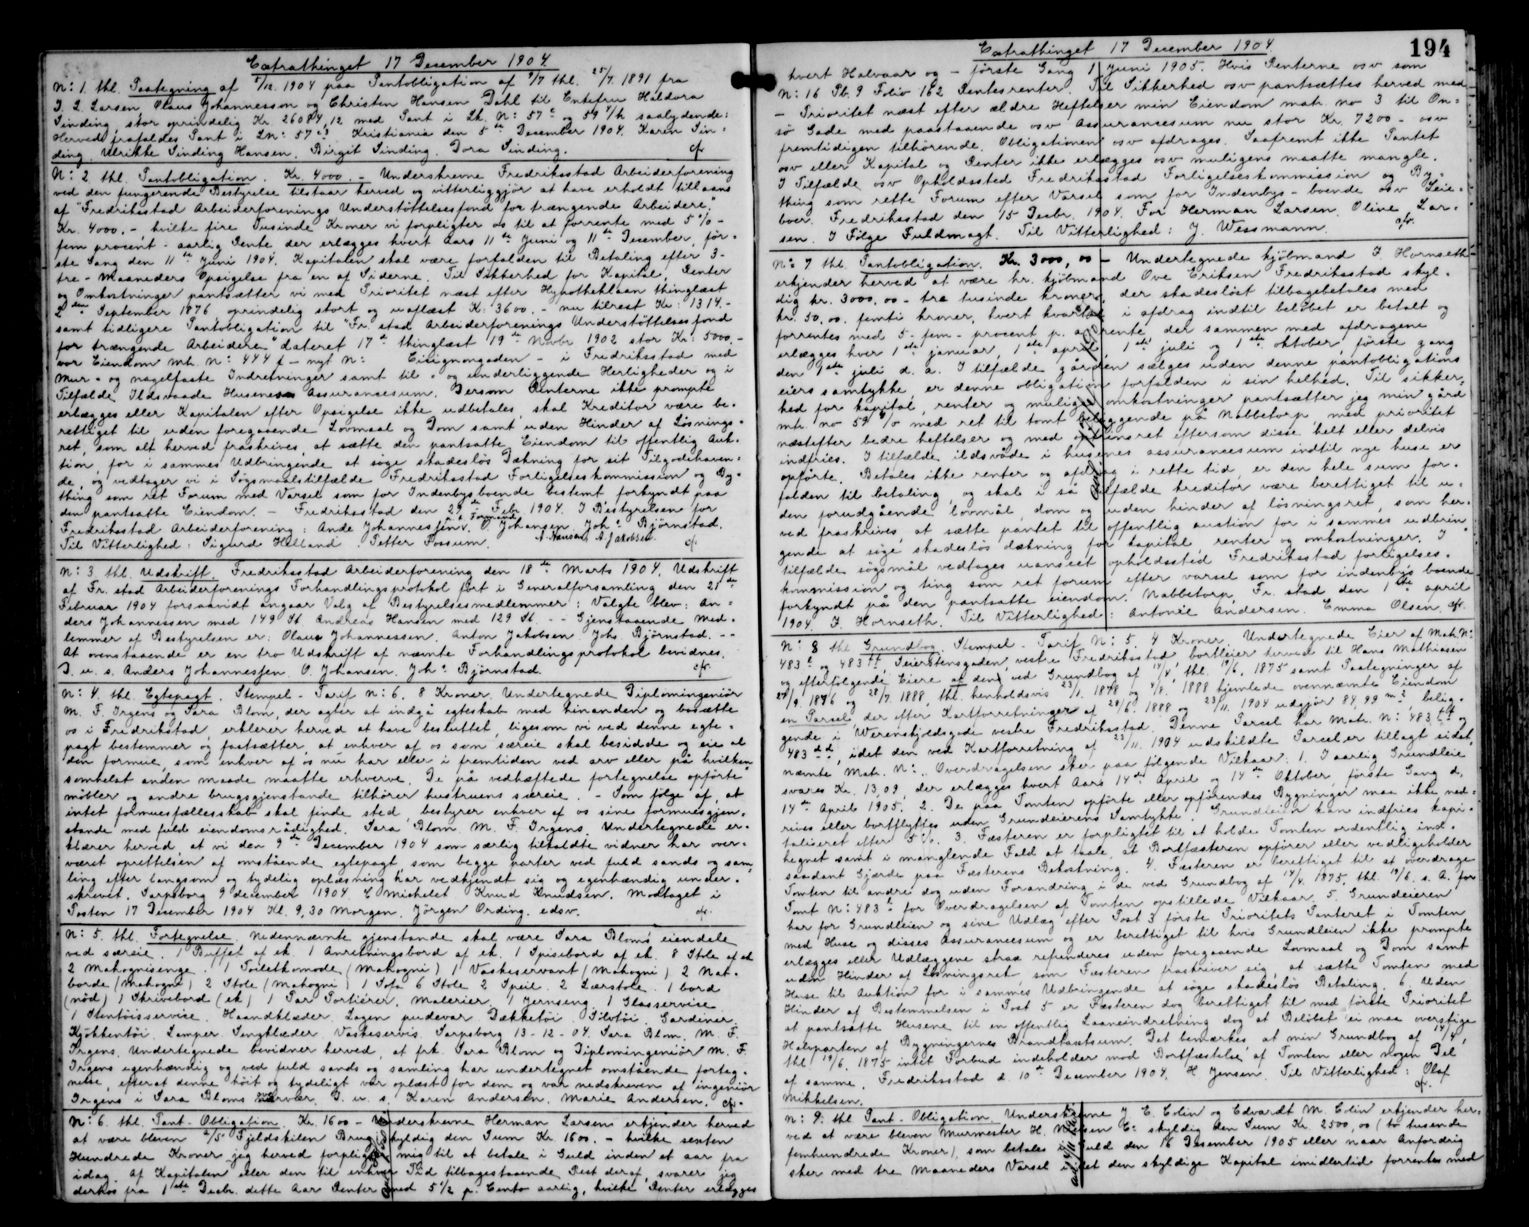 Extrathinget 17 Desember 1904
N: 1 thl. Paategning af 5/12 1904 paa Pantobligation af 9/7 thl. 25/7 1891 fra
J. L. Larsen, Olaus Johannesson og Christen Hansen Dahl til Enkefru Haldora
Sinding stor oprindelig Kr. 26084,12 med Pant i Lk. N: 57 og 59 saalydende:
Herved frafaldes Pant i Ln: 57. Kristiania den 5te December 1904. Karen Sin=
ding. Ulrikke Sinding Hansen. Birgit Sinding. Dora Sinding. cfr
N: 2 thl. Pantobligation. Kr. 4000.- Underskrevne Fredriksstad Arbeiderforening
ved den fungerende Bestyrelse tilstaar herved og vitterliggjør at have erholdt tillaans
af "Fredriksstad Arbeiderforenings Understøttelsesfond for trængende Arbeidere."
Kr. 4000.- hvilke fire Tusinde Kroner vi forpligter os til at forrente med 5% -
fem procent - aarlig Rente der erlægges hvert Aars 11te Juni og 11te Desember, før-
ste Gang den 11te Juni 1904. Kapitalen skal være forfalden til Betaling efter 3-
tre - Maaneders Opsigelse fra en af Siderne. Til Sikkerhed for Kapital, Renter
og Omkostninger pantsætter vi med Prioritet næst efter Hypotheklaan thinglæst
2den September 1876 oprindelig stort og uaflæst K: 3600.- nu tilrest Kr. 1314.-
samt tidligere Pantobligation til "Fr.stad Arbeiderforenings Understøttelsesfond
for trængende Arbeidere" dateret 17de thinglæst 19de Novbr 1902 stor Kr. 5000.-
vor Eiendom mtr. N: 444 - nyt N: i Fredriksstad med
mur- og nagelfaste Indretninger samt til- og underliggende Herligheder og i
Tilfælde Ildsvaade Husenes Assurancesum. Dersom Renterne ikke prompte
erlægges eller Kapitalen efter Opsigelse ikke udbetales, skal Kreditor være be-
rettiget til uden foregaaende Lovmaal og Dom samt uden Hinder af Løsnings-
ret, som alt herved fraskrives, at sætte den pantsatte Eiendom til offentlig Auk-
tion, for i sammes Udbringende at søge skadesløs Dækning for sit Tilgodehaven-
de, og vedtager vi i Søgsmaalstilfælde Fredriksstad Forligelseskommission og By-
thing som ret Forum med Varsel som for Indenbysboende bestemt forkyndt paa
den pantsatte Eiendom. - Fredriksstad den 29 Febr 1904. I Bestyrelsen for
Fredriksstad Arbeiderforening: Ande Johannessen, Formand. O Johansen. Joh: Bjørnstad.
Til Vitterlighed: Sigurd Helland. Petter Fossum. A. Hansen, A. Jakobsen. cfr.
N: 3 thl. Udskrift. Fredriksstad Arbeiderforening den 18de Marts 1904. Udskrift
af Fr.stad Arbeiderforenings Forhandlingsprotokol ført i Generalforsamling den 21de
Februar 1904 forsaavidt angaar Valg af Bestyrelsesmedlemmer: Valgte blev: An-
ders Johannessen med 149 St. Andreas Hansen med 129 St. -- Gjenstaaende Med-
lemmer af Bestyrelsen er: Olaus Johannessen, Anton Jakobsen, Johs Bjørnstad. --
At ovenstaaende er en tro Udskrift af nævnte Forhandlingsprotokol bevidnes.
D. u. s. Anders Johannessen. O. Johansen. Joh: Bjørnstad. cfr.
N: 4. thl. Egtepagt. Stempel - Tarif N: 6. 8 Kroner. Undertegnede Diplomingeniør
M. F. Irgens og Sara Blom, der agter at indgå egteskab med hinanden og bosætte
os i Fredrikstad, erklærer herved at have besluttet, ligesom vi ved denne egte-
pagt bestemmer og fastsætter, at enhver af os som særeie skal besidde og eie al
den formue, som enhver af os nu har eller i fremtiden ved arv eller på hvilken
somhelst anden maade maatte erhverve. De på vedhæftede fortegnelse opførte
møbler og andre brugsgjenstande tilhører hustruens særeie. - Som følge af, at
intet formuesfællesskab skal finde sted, bestyrer enhver af os sine formuesgjen-
stande med fuld eiendomsrådighed. Sara Blom. M. F. Irgens. Undertegnede er-
klærer herved, at vi den 9de December 1904 som særlig tilkaldte vidner har over-
været oprettelsen af omstående egtepagt, som begge parter ved fuld sands og sam-
ling efter langsom og tydelig oplæsning har vedkjendt sig og egenhændig under-
skrevet. Sarpsborg 9 december 1904. C Michelet. Knud Knudsen. Modtaget i
Posten 17 Desember 1904 Kl. 9,30 Morgen. Jørgen Ording. edsv. cfr.
N: 5. thl. Fortegnelse Nedennævnte gjenstande skal være Sara Bloms eiendele
ved særeie. 1 Buffet af ek 1 Anretningsbord af ek. 1 Spisebord af ek. 8 Stole af ek
2 Mahognisenge. 1 Toiletkomode (Mahogni) 1 Vaskeservant (Mahogni) 2 Nat-
borde (Mahogni) 2 Stole (Mahogni) 1 Sofa 6 Stole 2 Speil. 2 Lærstole. 1 bord
(nød) 1 Skrivebord (ek) 1 Par Portierer. Malerier. 1 Jernseng. 1 Glasservise
1 Stentøisservise. Haandklæder. Lagen pudevar Dækketøi. Sølvtøi. Gardiner.
Kjøkkentøi. Lamper. Sengklæder Vaskeservis. Sarpsborg 13-12-04. Sara Blom. M. F.
Irgens. Undertegnede bevidner herved, at frk. Sara Blom og Diplomingeniør M. F.
Irgens egenhændig og ved fuld sands og samling har undertegnet omstående forteg-
nelse, efterat denne høit og tydeligt var oplæst for dem og var nedskreven af ingeniør
Irgens i Sara Bloms nærvær. D. u. s. Karen Andersen. Marie Andersen. cfr.
N: 6. thl. Pant-Obligation. Kr. 1600 - Underskrevne Herman Larsen erkjender herved
at være bleven A/S Fjeldskilen Brug skyldig den Sum Kr 1600. - hvilke sexten
Hundrede Kroner jeg herved forpligter mig til at betale i Guld inden et aar fra
idag. Af Kapitalen eller den til enhver Tid tilbagestaaende Rest deraf svarer jeg
derhos fra 1ste Decbr. dette Aar Renter med 5½ p. Cento aarlig, hvilke Renter erlægges
Extrathinget 17 December 1904
194
hvert Halvaar og - første Gang 1 Juni 1905. Hvis Renterne osv som
N: 16 Pb. 9 Folio 162 Rentesrenter. Til Sikkerhed osv pantsættes herved med
- Prioritet næst efter ældre Heftelser min Eiendom matr. no 3 til On-
sø Gade med paastaaende osv Assurancesum nu stor Kr. 7200 - osv
fremtidigen tilhørende. Obligationen osv afdrages. Saafremt ikke Pantet
osv eller Kapital og Renter ikke erlægges osv muligens maatte mangle.
I Tilfælde osv Opholdssted Fredriksstad Forligelseskommission og By-
thing som rette Forum efter Varsel som for Indenbys-boende osv Leie-
boer. Fredriksstad den 15 Decbr. 1904. For Herman Larsen. Oline Lar-
sen. I Følge Fuldmagt. Til Vitterlighed: J. Wessmann. cfr.
N: 7 thl. Pantobligation. Kr. 3000,00 - Undertegnede kjøbmand I. Hornseth
erkjender herved at være hr. kjøbmand Ove Eriksen Fredriksstad skyl-
dig kr. 3000,00 - tre tusinde kroner, der skadesløst tilbagebetales med
kr. 50,00, femti kroner, hvert kvartal i afdrag indtil beløbet er betalt og
forrentes med 5 - fem - procent p. a. rente der sammen med afdragene
erlægges hver 1ste januar, 1ste april, 1ste juli og 1ste oktober første gang
den 1ste juli d. a. I tilfælde gården sælges uden denne pantobligations
eiers samtykke er denne obligation forfalden i sin helhed. Til sikker-
hed for kapital, renter og mulige omkostninger pantsætter jeg min gård
mtr. no 59 med ret til tomt beliggende på Nabbetorp med prioritet
næstefter bedre heftelser og med optionsret eftersom disse helt eller delvis
indfries. I tilfælde ildsvåde i husenes assurancesum indtil nye huse er
opførte. Betales ikke renter og afdrag i rette tid, er den hele sum for-
falden til betaling, og skal i så tilfælde kreditor være berettiget til u-
den forudgående lovmål dom og uden hinder af løsningsret, som her-
ved fraskrives, at sætte pantet til offentlig auction for i sammes udbrin-
gende at søge skadesløs dækning for kapital renter og omkostninger. I
tilfælde søgsmål vedtages uanseet opholdssted Fredriksstad forligelses-
kommission, ting som ret forum efter varsel som for indenbys boende
forkyndt på den pantsatte eiendom. Nabbetorp, Fr. stad den 1ste april
1904 I. Hornseth. Til Vitterlighed: Antonie Andersen. Emma Olsen. cfr.
N: 8 thl Grundbog. Stempel - Tarif N: 5. 4 Kroner. Undertegnede Eier af Mat. N:
483 og 483 Seierstensgaden, vestre Fredriksstad bortleier herved til Hans Mathiasen
og efterfølgende Eiere af den ved Grundbog af 14/4, thl. 19/6. 1875 samt Paategninger af
1876 og 28/7 1888, thl. henholdsvis 23/1. 1878 og 1888 hjemlede ovennævnte Eiendom
en Parcel, der efter Kartforretninger af 20/6 1888 og 23/11. 1904 udgjør 84,99 m2, belig-
gende i Werenskjoldsgade vestre Fredriksstad. Denne Parcel har Matr. N: 483 og
483 dd, idet den ved Kartforretning af 23/11. 1904 udskildte Parcel er tillagt sidst-
nævnte Matr. N:. Overdragelsen sker paa følgende Vilkaar: 1. I aarlig Grundleie
svares Kr. 13,09, der erlægges hvert Aars 14de April og 14de Oktober, første Gang d.
14de April 1905. 2. De paa Tomten opførte eller opførendes Bygninger maa ikke ned-
rives eller bortflyttes uden Grundeierens Samtykke. Grundleien kan indfries kapi-
taliseret efter 5%. 3. Fæsteren er forpligtet til at holde Tomten ordentlig ind-
hegnet samt i manglende Fald at taale, at Bortfæsteren opfører eller vedligeholder
saadant Gjærde paa Fæsterens Bekostning. 4. Fæsteren er berettiget til at overdrage
Tomten til andre dog uden Forandring i de ved Grundbog af 14/4. 1875 thl. 19/6. s. A. for
Tomt N: 483 for Overdragelsen af Tomten opstillede Vilkaar. 5. Grundeieren
har for Grundleien og sine Udlæg efter Post 3 første Prioritets Panteret i Tomten
med Huse og disses Assurancesum og er berettiget til hvis Grundleien ikke prompte
erlægges eller Udlæggene strax refunderes uden foregaaende Lovmaal og Dom samt
uden Hinder af Løsningsret som Fæsteren fraskriver sig, at sætte Tomten med
Huse til Auktion for i sammes Udbringende at søge skadesløs Betaling. 6. Uden
Hinder af Bestemmelsen i Post 5 er Fæsteren dog berettiget til med første Prioritet
at pantsætte Husene til en offentlig Laaneindretning dog at Beløbet ei maa overstige
Halvparten af Bygningernes Brandtaxtsum. Det bemærkes at min Grundbog af 14/4,
thl. 19/6. 1875 intet Forbud indeholder mod Bortfæstelse af Tomten eller nogen Del
af samme. Fredriksstad d. 10de December 1904. H Jensen. Til Vitterlighed: Olaf
Mikkelsen. cfr.
N: 9: thl Pant-Obligation. Underskrevne J. E. Colin og Edvardt M. Colin erkjender her-
ved at være bleven Murmester H. Nilsen Co: skyldig den Sum Kr. 2500,00 (to tusende
femhundrede Kroner), som betales i Guld den 16 Desember 1905 eller naar Anfordring
sker med tre Maaneders Varsel i det den skyldige Kapital imidlertid forrentes med